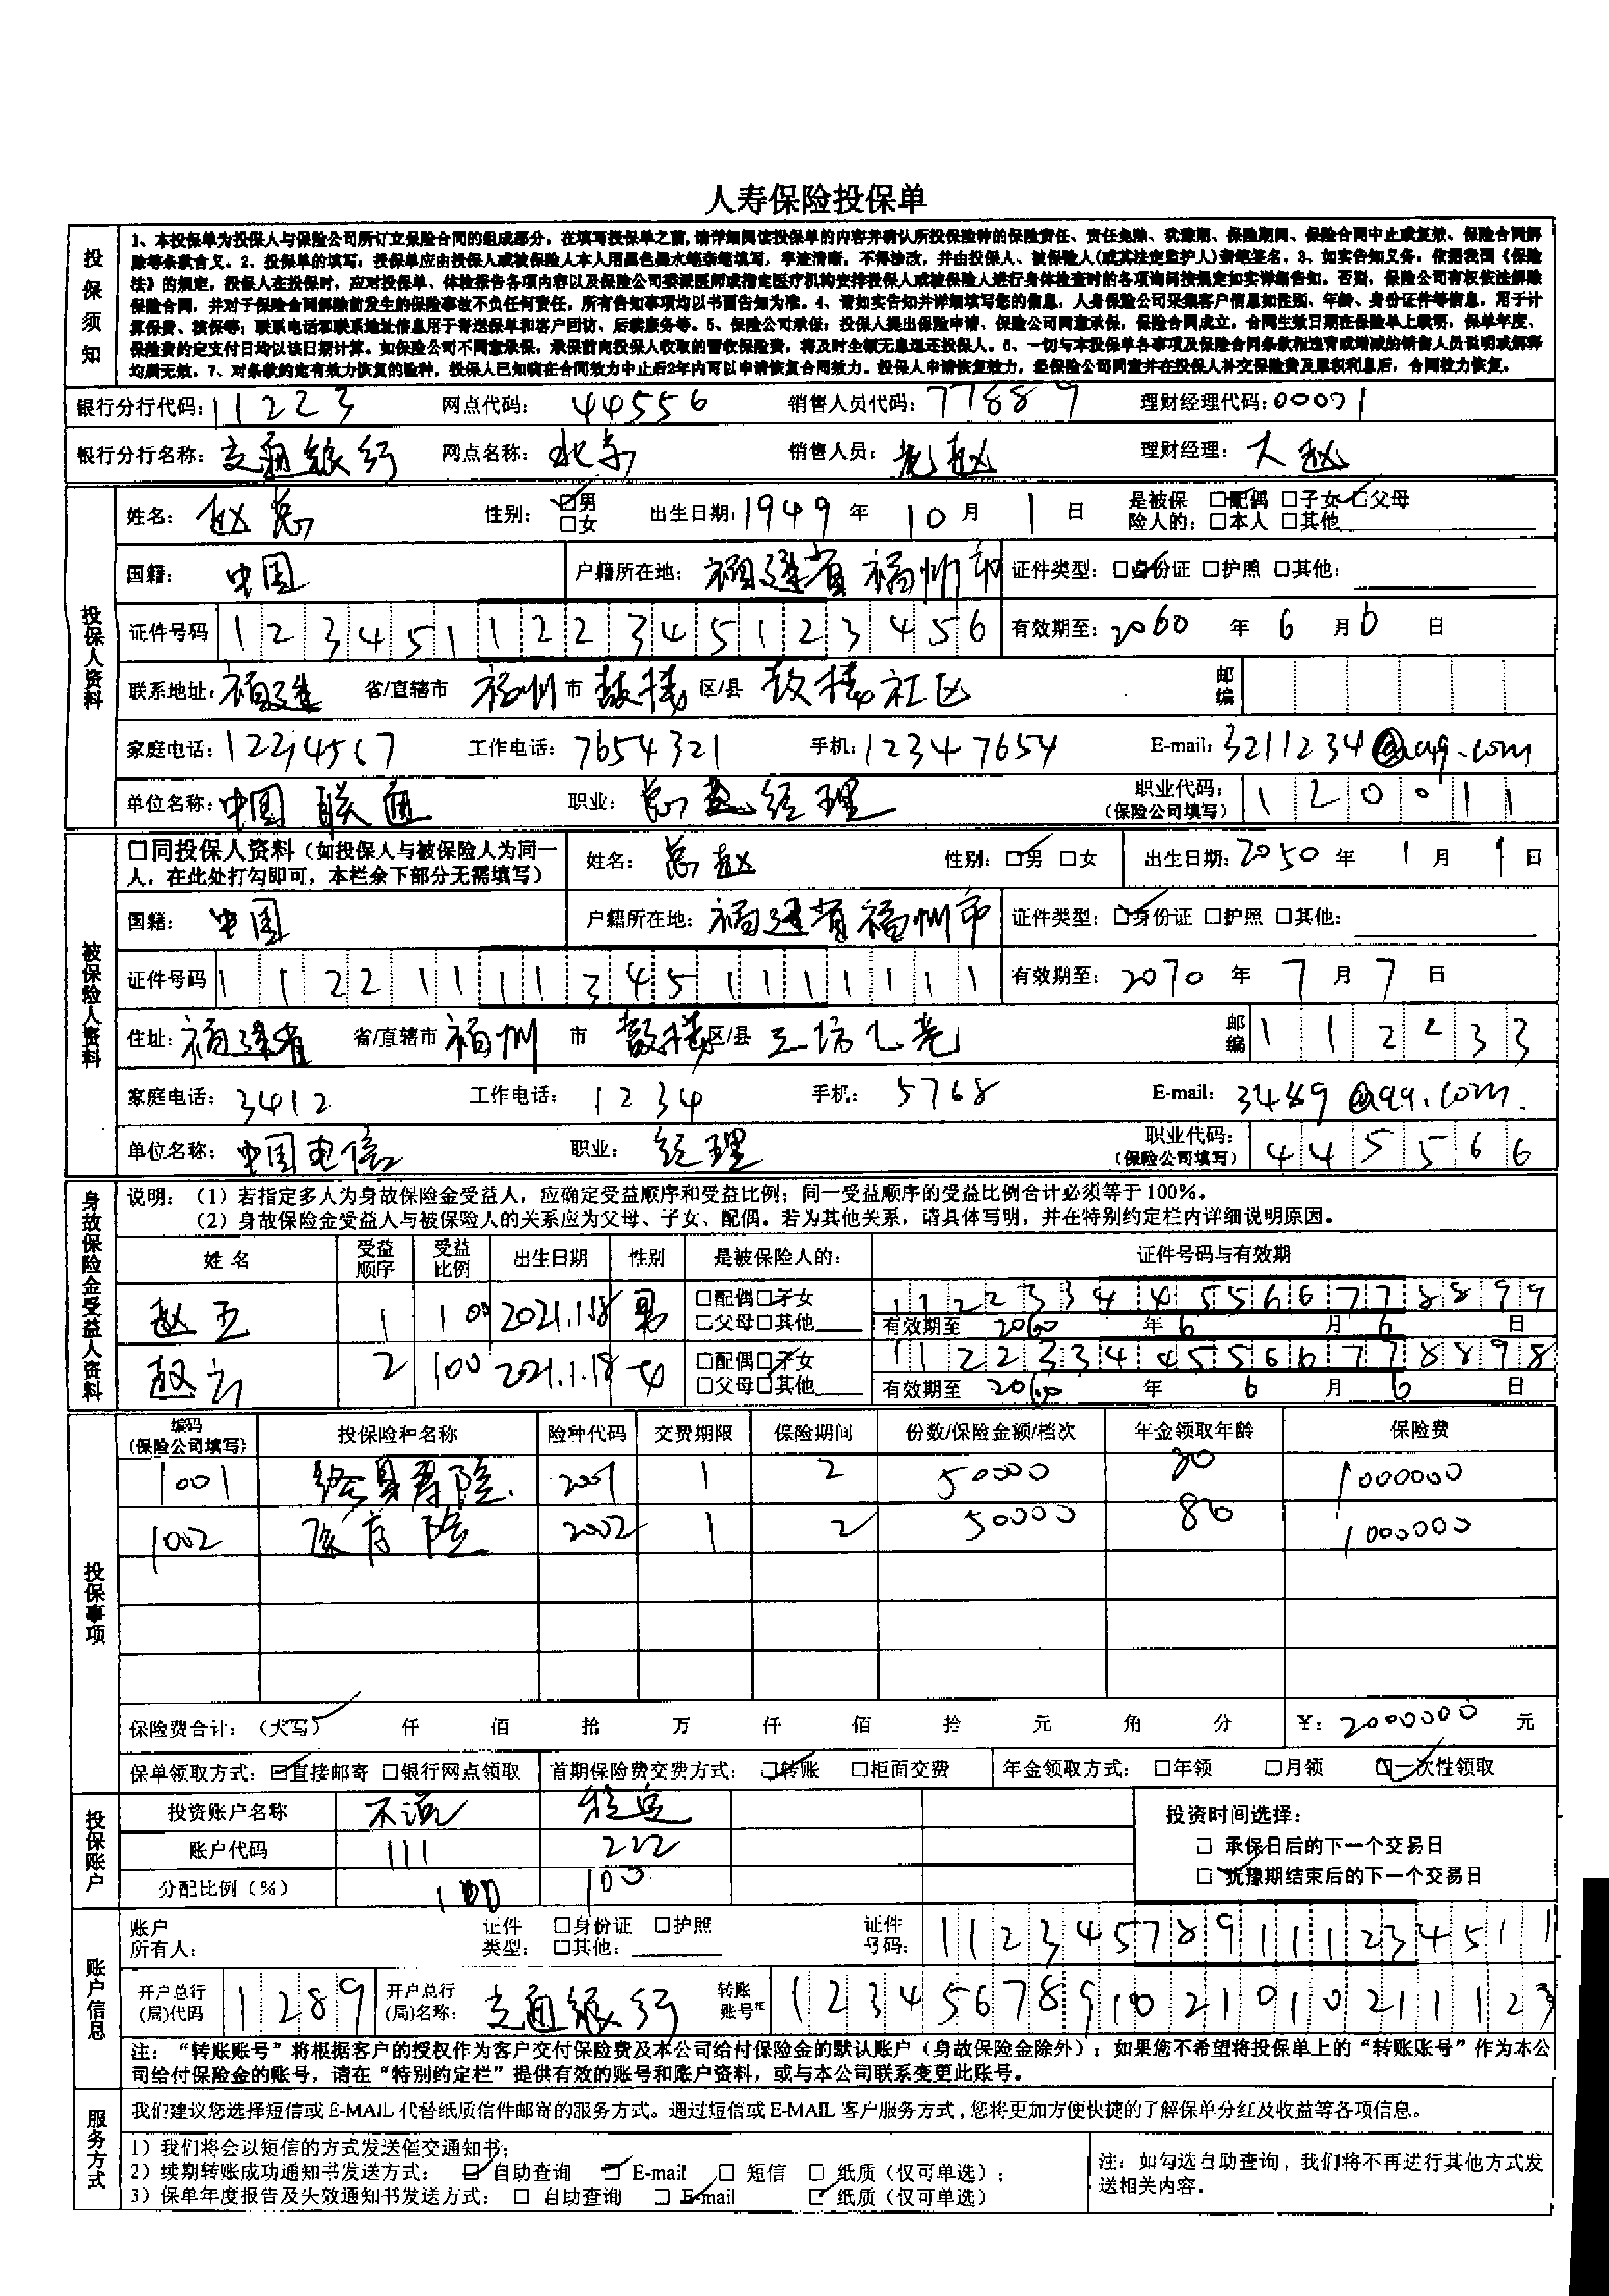 人寿保险投保单
投保须知
1、本投保单为投保人与保险公司所订立保险合同的组成部分。在填写投保单之前,请详细阅读投保单的内容并确认所投保险种的保险责任、责任免除、犹豫期、保险期间、保险合同中止或复效、保险合同解
除等条款含义。2、投保单的填写：投保单应由投保人或被保险人本人用黑色墨水笔亲笔填写，字迹清晰，不得涂改，并由投保人、被保险人(或其法定监护人)亲笔签名。3、如实告知义务：依据我国《保险
法》的规定，投保人在投保时，应对投保单、体检报告各项内容以及保险公司委派医师或指定医疗机构安排投保人或被保险人进行身体检查时的各项询问按规定如实详细告知。否则，保险公司有权依法解除
保险合同，并对于保险合同解除前发生的保险事故不负任何责任。所有告知事项均以书面告知为准。4、请如实告知并详细填写您的信息，人身保险公司采集客户信息如性别、年龄、身份证件等信息，用于计
算保费、核保等；联系电话和联系地址信息用于寄送保单和客户回访、后续服务等。5、保险公司承保：投保人提出保险申请、保险公司同意承保，保险合同成立。合同生效日期在保险单上载明，保单年度、
保险费约定支付日均以该日期计算。如保险公司不同意承保，承保前向投保人收取的暂收保险费，将及时全额无息退还投保人。6、一切与本投保单各事项及保险合同条款相违背或增减的销售人员说明或解释
均属无效。7、对条款约定有效力恢复的险种，投保人已知晓在合同效力中止后2年内可以申请恢复合同效力。投保人申请恢复效力，经保险公司同意并在投保人补交保险费及累积利息后，合同效力恢复。
银行分行代码：11223 网点代码：44556 销售人员代码：77889 理财经理代码：00001
银行分行名称：交通银行 网点名称：北京 销售人员：老赵 理财经理：大赵
投保人资料
姓名：赵总 性别：□男 □女 出生日期：1949 年 10 月 1 日 是被保险人的：□配偶 □子女 □父母 □本人 □其他
国籍：中国 户籍所在地：福建省福州市 证件类型：□身份证 □护照 □其他：
证件号码 123451122345123456 有效期至：2060 年 6 月 6 日
联系地址：福建 省/直辖市 福州 市 鼓楼 区/县 鼓楼社区 邮编
家庭电话：12234567 工作电话：7654321 手机：12347654 E-mail：3211234@qq.com
单位名称：中国联通 职业：总经理 职业代码：（保险公司填写） 120011
被保险人资料
□同投保人资料（如投保人与被保险人为同一人，在此处打勾即可，本栏余下部分无需填写） 姓名：总赵 性别：□男 □女 出生日期：2050 年 1 月 1 日
国籍：中国 户籍所在地：福建省福州市 证件类型：□身份证 □护照 □其他：
证件号码 112211113451111111 有效期至：2070 年 7 月 7 日
住址：福建省 省/直辖市 福州 市 鼓楼 区/县 三坊七巷 邮编 112233
家庭电话：3412 工作电话：1234 手机：5768 E-mail：3489@qq.com.
单位名称：中国电信 职业：经理 职业代码：（保险公司填写） 445566
身故保险金受益人资料
说明：（1）若指定多人为身故保险金受益人，应确定受益顺序和受益比例；同一受益顺序的受益比例合计必须等于 100%。
（2）身故保险金受益人与被保险人的关系应为父母、子女、配偶。若为其他关系，请具体写明，并在特别约定栏内详细说明原因。
姓 名 受益顺序 受益比例 出生日期 性别 是被保险人的： 证件号码与有效期
赵五 1 100 2021.1.18 男 □配偶□子女 □父母□其他 112233445566778899
有效期至 2060 年 6 月 6 日
赵六 2 100 2021.1.18 女 □配偶□子女 □父母□其他 112233445566778898
有效期至 2060 年 6 月 6 日
投保事项
编码（保险公司填写） 投保险种名称 险种代码 交费期限 保险期间 份数/保险金额/档次 年金领取年龄 保险费
1001 终身寿险. 2001 1 2 50000 80 1000000
1002 医疗险 2002 1 2 50000 80 1000000
保险费合计：（大写） 仟 佰 拾 万 仟 佰 拾 元 角 分 ¥：2000000 元
保单领取方式：□直接邮寄 □银行网点领取 首期保险费交费方式：□转账 □柜面交费 年金领取方式：□年领 □月领 □一次性领取
投保账户
投资账户名称 稳定 投资时间选择：
账户代码 111 222 □ 承保日后的下一个交易日
分配比例（%） 100 100 □ 犹豫期结束后的下一个交易日
账户信息
账户所有人： 证件类型：□身份证 □护照 □其他： 证件号码：112345789111123451 1
开户总行(局)代码 1289 开户总行(局)名称：交通银行 转账账号注 123456789100210102111 23
注：“转账账号”将根据客户的授权作为客户交付保险费及本公司给付保险金的默认账户（身故保险金除外）；如果您不希望将投保单上的“转账账号”作为本公
司给付保险金的账号，请在“特别约定栏”提供有效的账号和账户资料，或与本公司联系变更此账号。
服务方式
我们建议您选择短信或 E-MAIL 代替纸质信件邮寄的服务方式。通过短信或 E-MAIL 客户服务方式，您将更加方便快捷的了解保单分红及收益等各项信息。
1）我们将会以短信的方式发送催交通知书；
2）续期转账成功通知书发送方式： □ 自助查询 □ E-mail □ 短信 □ 纸质（仅可单选）；
3）保单年度报告及失效通知书发送方式：□ 自助查询 □ E-mail □ 纸质（仅可单选）
注：如勾选自助查询，我们将不再进行其他方式发
送相关内容。